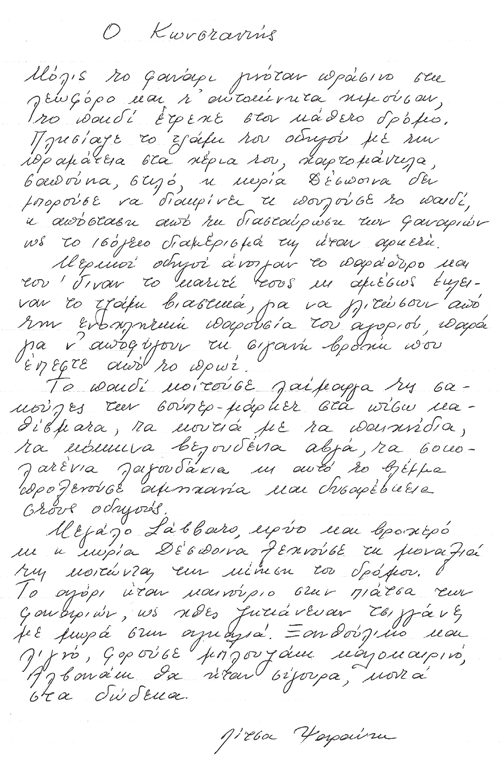 Ο Κωνσταντής
Μόλις το φανάρι γινόταν πράσινο στη
λεωφόρο και τ' αυτοκίνητα χιμούσαν,
το παιδί έτρεχε στον κάθετο δρόμο.
Πλησίαζε το τζάμι του οδηγού με την
πραμάτεια στα χέρια του, χαρτομάντιλα,
σαπούνια, στιλό, η κυρία Δέσποινα δεν
μπορούσε να διακρίνει τι πουλούσε το παιδί,
η απόσταση από τη διασταύρωση των φαναριών
ως το ισόγειο διαμέρισμά της ήταν αρκετή.
Μερικοί οδηγοί άνοιγαν το παράθυρο και
του 'διναν το κατιτί τους κι αμέσως έκλει-
ναν το τζάμι βιαστικά, για να γλιτώσουν από
την ενοχλητική παρουσία του αγοριού, παρά
για ν' αποφύγουν τη σιγανή βροχή που
έπεφτε από το πρωί.
Το παιδί κοιτούσε λαίμαργα τις σα-
κούλες των σούπερ-μάρκετ στα πίσω κα-
θίσματα, τα κουτιά με τα παιχνίδια,
τα κόκκινα βελουδένια αβγά, τα σοκο-
λατένια λαγουδάκια κι αυτό το βλέμμα
προξενούσε αμηχανία και δυσαρέσκεια
στους οδηγούς.
Μεγάλο Σάββατο, κρύο και βροχερό
κι η κυρία Δέσποινα ξεχνούσε τη μοναξιά
της κοιτώντας την κίνηση του δρόμου.
Το αγόρι ήταν καινούριο στην πιάτσα των
φαναριών, ως χθες ζητιάνευαν τσιγγάνες
με μωρά στην αγκαλιά. Ξανθούλικο και
λιγνό, φορούσε μπλουζάκι καλοκαιρινό,
Αλβανάκι θα 'ταν σίγουρα, κοντά
στα δώδεκα.
Λίτσα Ψαραύτη